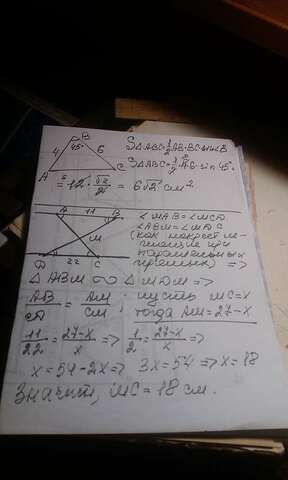 B
45°
4
6
A
C
S△ABC=1/2 AB·BC sin∠B
S△ABC=1/2·4·6·sin 45°=
=12·√2/2=6√2 см²
A 11 B
M
D 22 C
∠MAB=∠MCD,
∠ABM=∠MDC
(как накрест ле-
жащие при
параллельных
прямых) =>
△ABM ∾ △MDM =>
AB/CD = AM/CM; пусть MC=x
тогда AM=27-x
11/22=27-x/x => 1/2=27-x/x =>
x=54-2x => 3x=54 => x=18
Значит, MC=18 см.